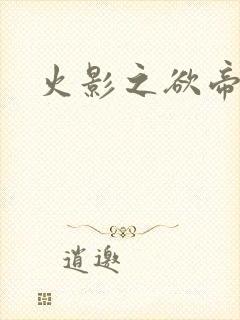 火影之欲帝
逍邀